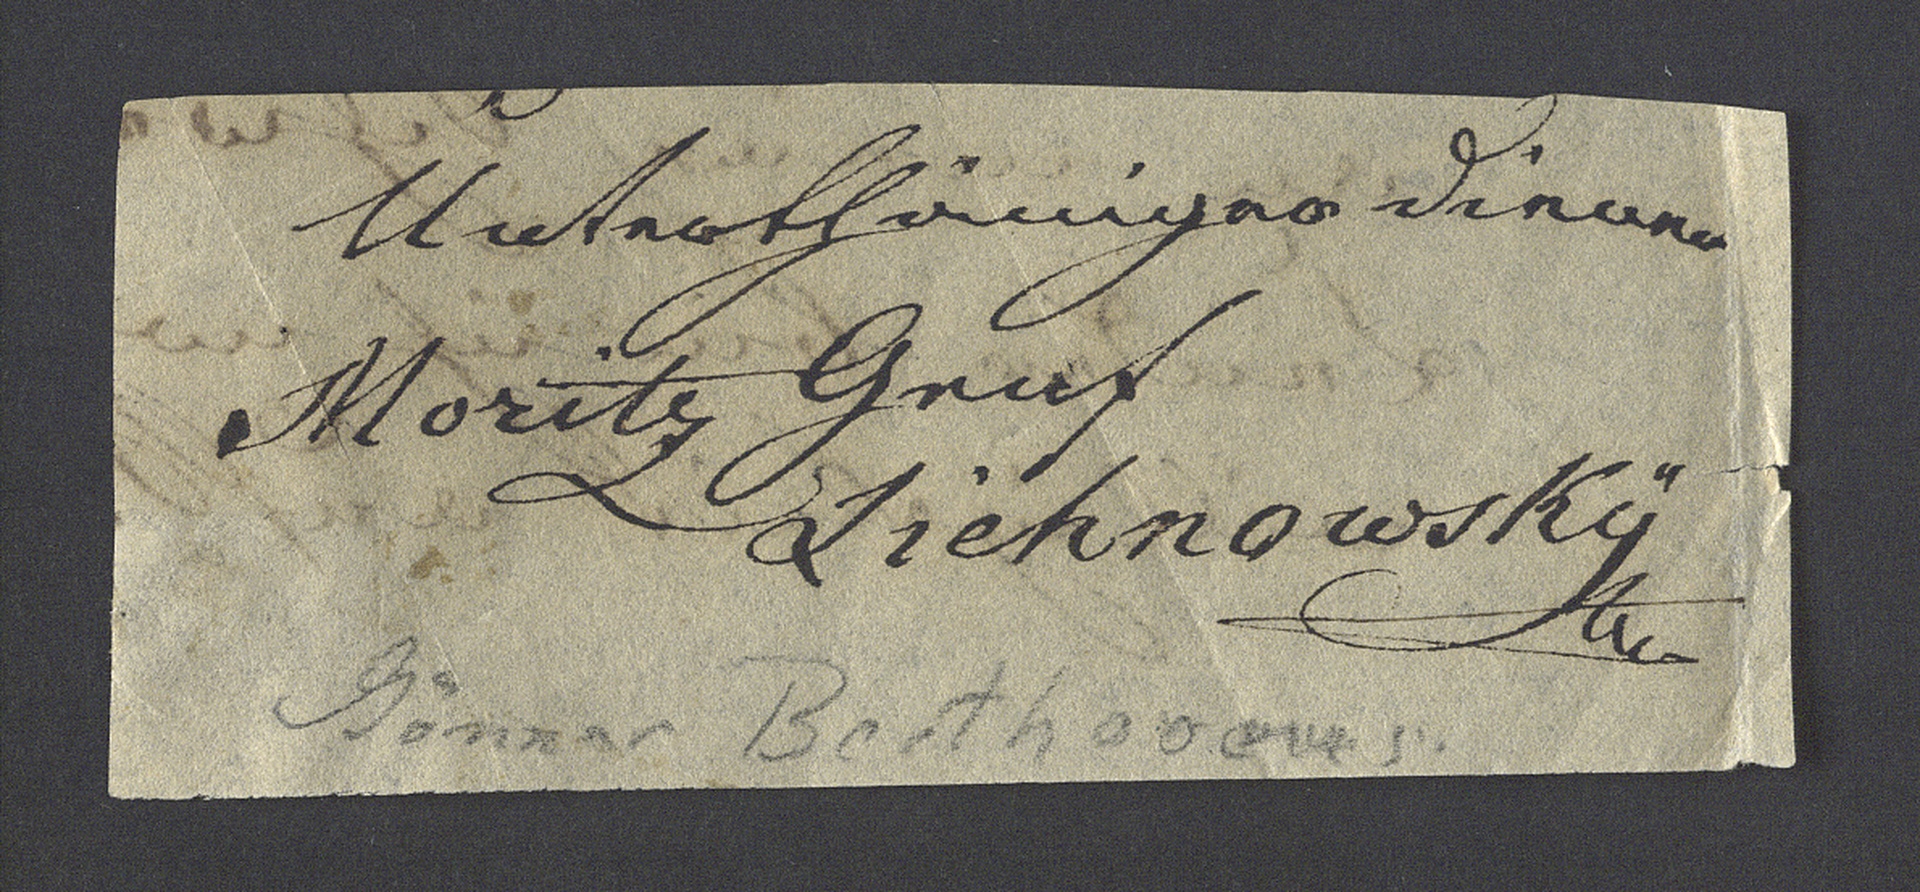 Unterthäniger Diener
Moritz Graf
Lichnowskÿ
Gönner Beethovens.